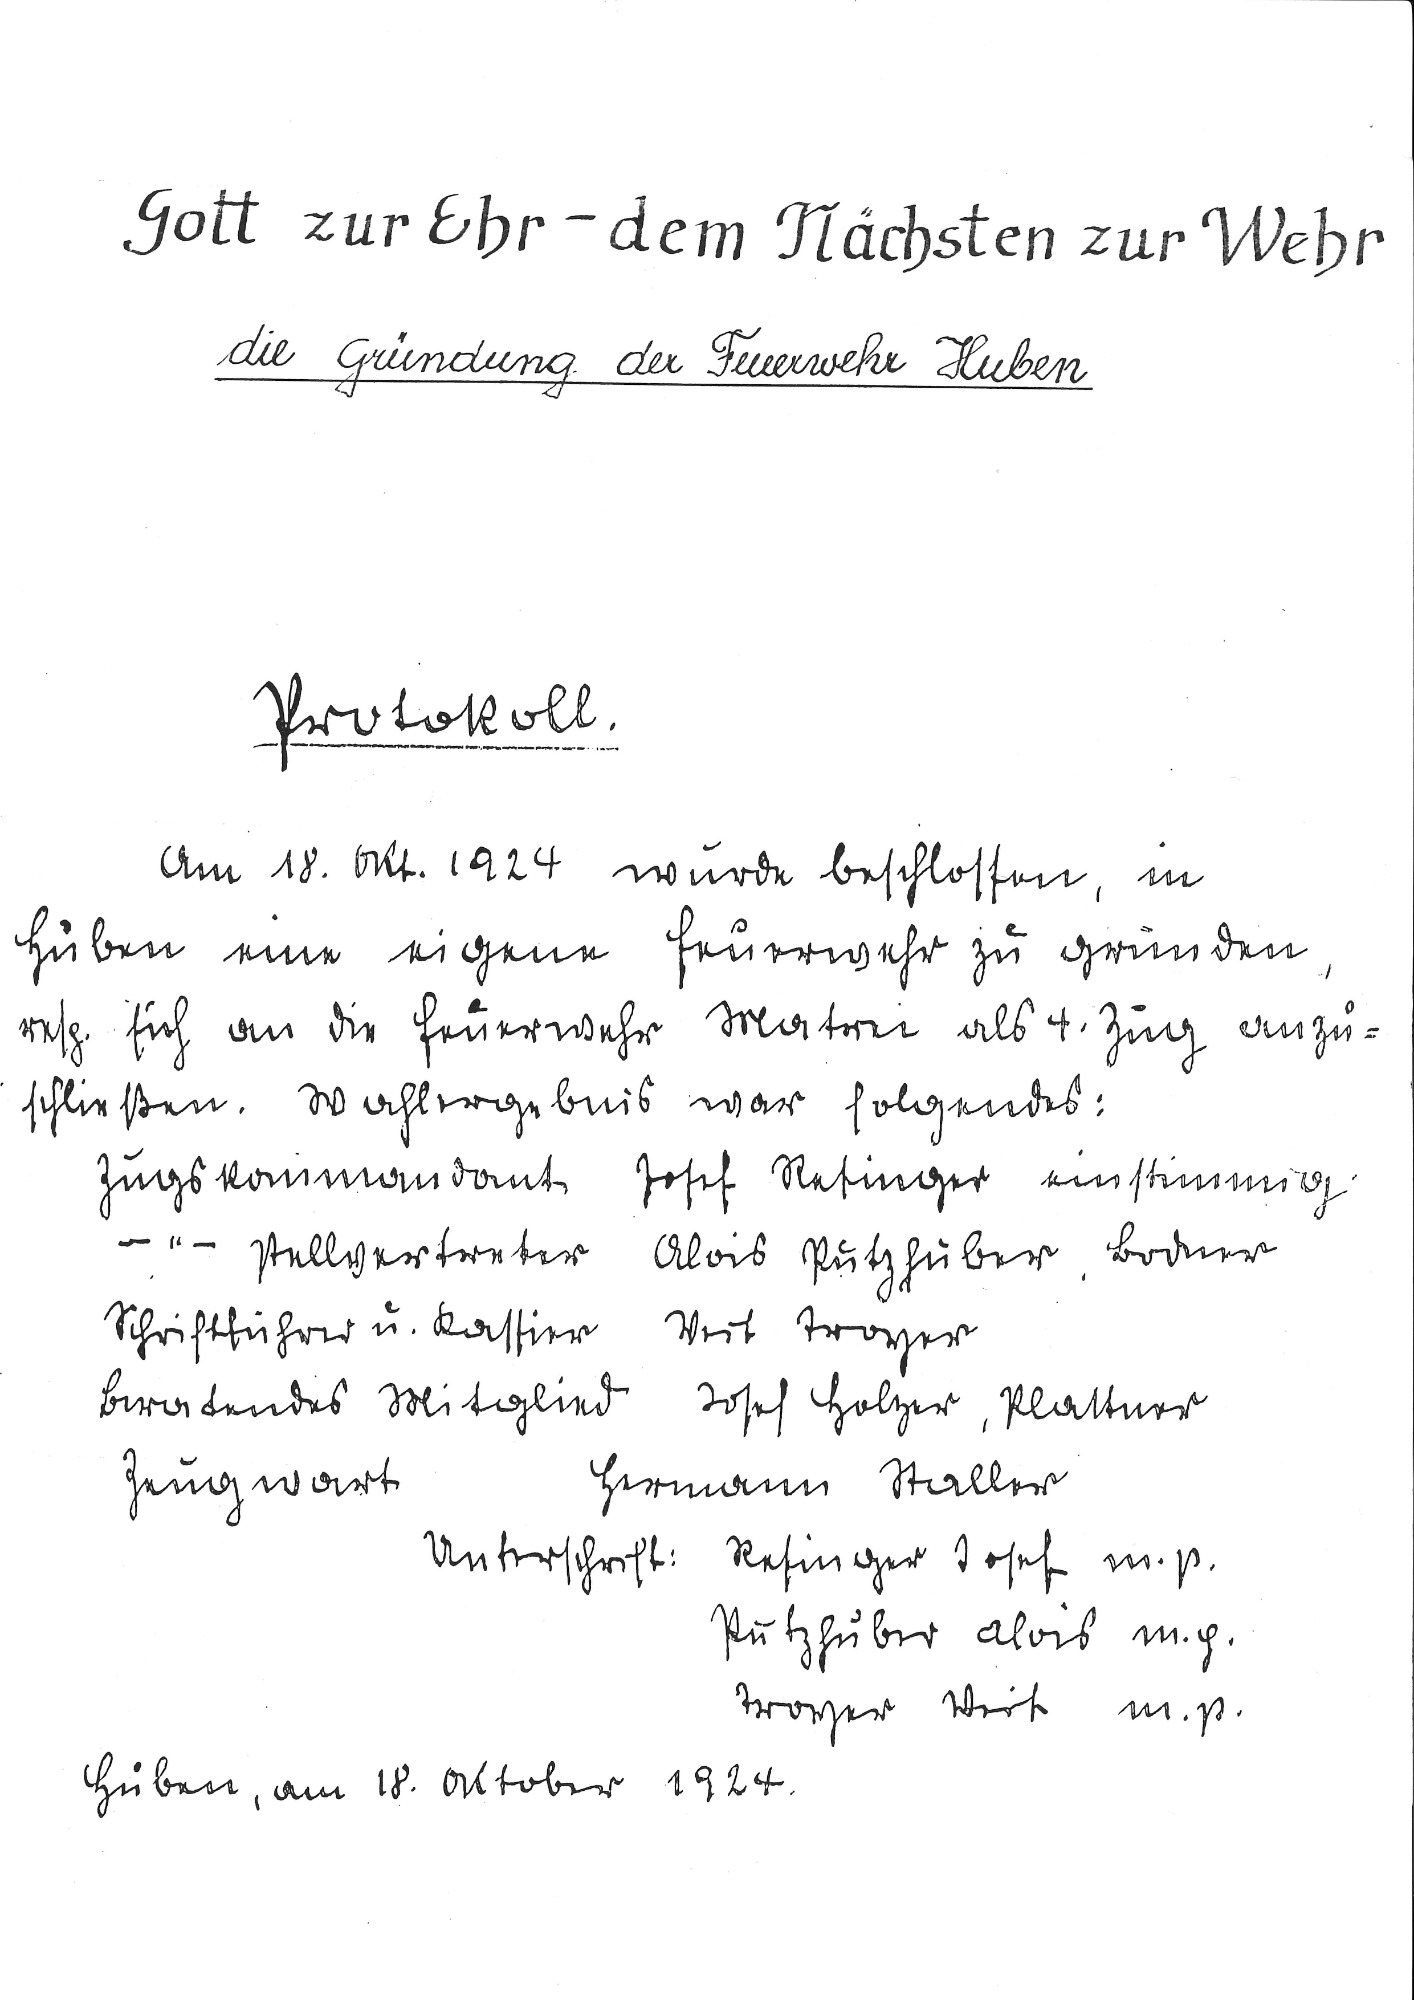 Gott zur Ehr – dem Nächsten zur Wehr
die Gründung der Feuerwehr Huben
Protokoll.
Am 18. Okt. 1924 wurde beschlossen, in
Huben eine eigene Feuerwehr zu gründen,
resp. sich an die Feuerwehr Matrei als 4. Zug anzu=
schließen. Wahlergebnis war folgendes:
Zugskommandant Josef Resinger einstimmig
– " – Stellvertreter Alois Putzhuber, Bodner
Schriftführer u. Kassier Veit Troyer
Beratendes Mitglied Josef Holzer, Plattner
Zeugwart Hermann Staller
Unterschrift: Resinger Josef m.p.
Putzhuber Alois m.p.
Troyer Veit m.p.
Huben, am 18. Oktober 1924.